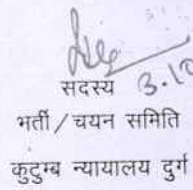 सदस्य 3.10
भर्ती / चयन समिति
कुटुम्ब न्यायालय दुर्ग